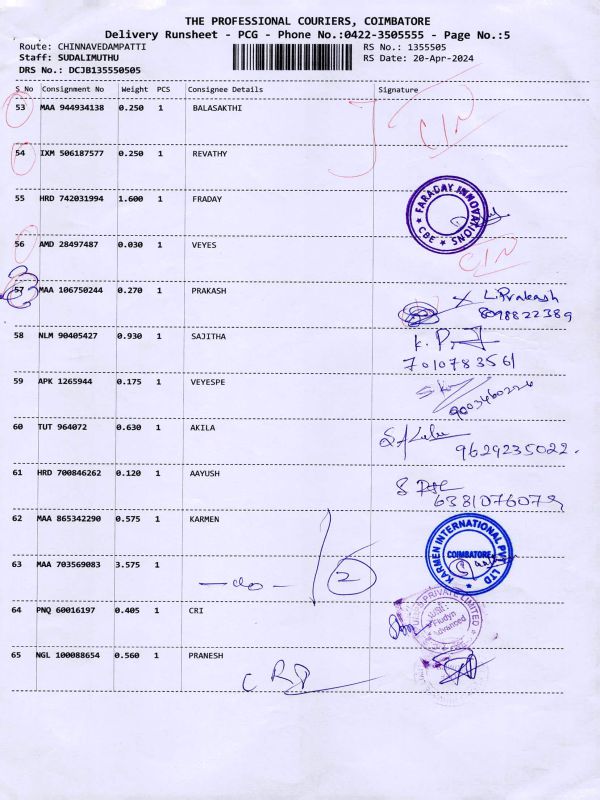 THE PROFESSIONAL COURIERS, COIMBATORE
Delivery Runsheet - PCG - Phone No.:0422-3505555 - Page No.:5
Route: CHINNAVEDAMPATTI RS No.: 1355505
Staff: SUDALIMUTHU RS Date: 20-Apr-2024
DRS No.: DCJB135550505
S_No Consignment No Weight PCS Consignee Details Signature
53 MAA 944934138 0.250 1 BALASAKTHI
54 IXM 506187577 0.250 1 REVATHY
55 HRD 742031994 1.600 1 FRADAY
FARADAY INNOVATIONS
CBE
56 AMD 28497487 0.030 1 VEYES
57 MAA 106750244 0.270 1 PRAKASH
L.Prakash
8098822389
58 NLM 90405427 0.930 1 SAJITHA
7010783561
59 APK 1265944 0.175 1 VEYESPE
60 TUT 964072 0.630 1 AKILA
9629235022.
61 HRD 700846262 0.120 1 AAYUSH
6381076079
62 MAA 865342290 0.575 1 KARMEN
KARMEN INTERNATIONAL PVT LTD
COIMBATORE
63 MAA 703569083 3.575 1
-do- 2
64 PNQ 60016197 0.405 1 CRI
PRIVATE LIMITED
Fludyn
Advanced
65 NGL 100088654 0.560 1 PRANESH